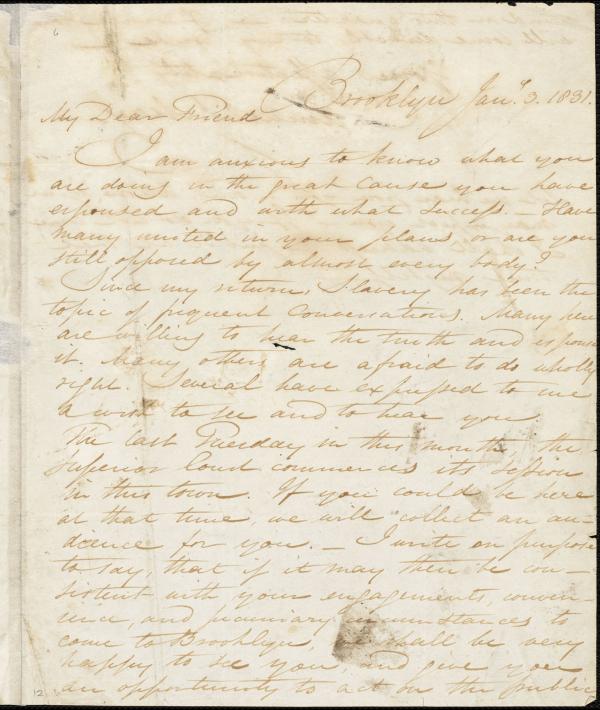 6
Brooklyn Jany. 3. 1831.
My Dear Friend
I am anxious to know what you
are doing in the great cause you have
espoused and with what success. — Have
many united in your plans, or are you
still opposed by almost every body?
Since my return, Slavery has been the
topic of frequent conversations. Many here
are willing to hear the truth and espouse
it. Many others are afraid to do wholly
right. Several have expressed to me
a wish to see and to hear you.
The last Tuesday in this month, the
Superior Court commences its session
in this town. If you could be here
at that time, we will collect an au-
dience for you. — I write on purpose
to say, that if it may then be con-
sistent with your engagements, conven-
ience, and pecuniary circumstances to
come to Brooklyn, shall be very
happy to see you, and give you
an opportunity to act on the public
12